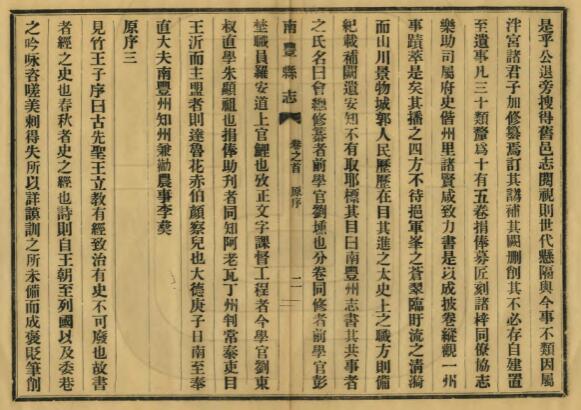 是乎公退旁搜得舊邑志閱視則世代懸隔與今事不類因屬
泮宮諸君子加修纂焉訂其譌補其闕刪創其不必存自建置
至遺事凡三十類釐爲十有五卷捐俸募匠刻諸梓同僚協志
樂助司屬府史偕州里諸賢咸致力書是以成披卷縱觀一州
事蹟萃是矣其播之四方不待挹軍峯之蒼翠臨盱流之清漪
而山川景物城郭人民歷歷在目其進之太史上之職方則備
紀載補闕遺安知不有取耶標其目曰南豐州志書其共事者
之氏名曰會總修纂者前學官劉壎也分卷同修者前學官彭
南豐縣志
卷之首 原序
二
埜職員羅安道上官鯉也攷正文字課督工程者今學官劉東
叔直學朱顯祖也捐俸助刋者同知阿老瓦丁州判常泰吏目
王沂而主盟者則達魯花赤伯顏察兒也大德庚子日南至奉
直大夫南豐州知州兼勸農事李彝
原序三
見竹王子序曰古先聖王立教有經致治有史不可廢也故書
者經之史也春秋者史之經也詩則自王朝至列國以及委巷
之吟咏咨嗟美刺得失所以詳謨訓之所未備而成褒貶筆創